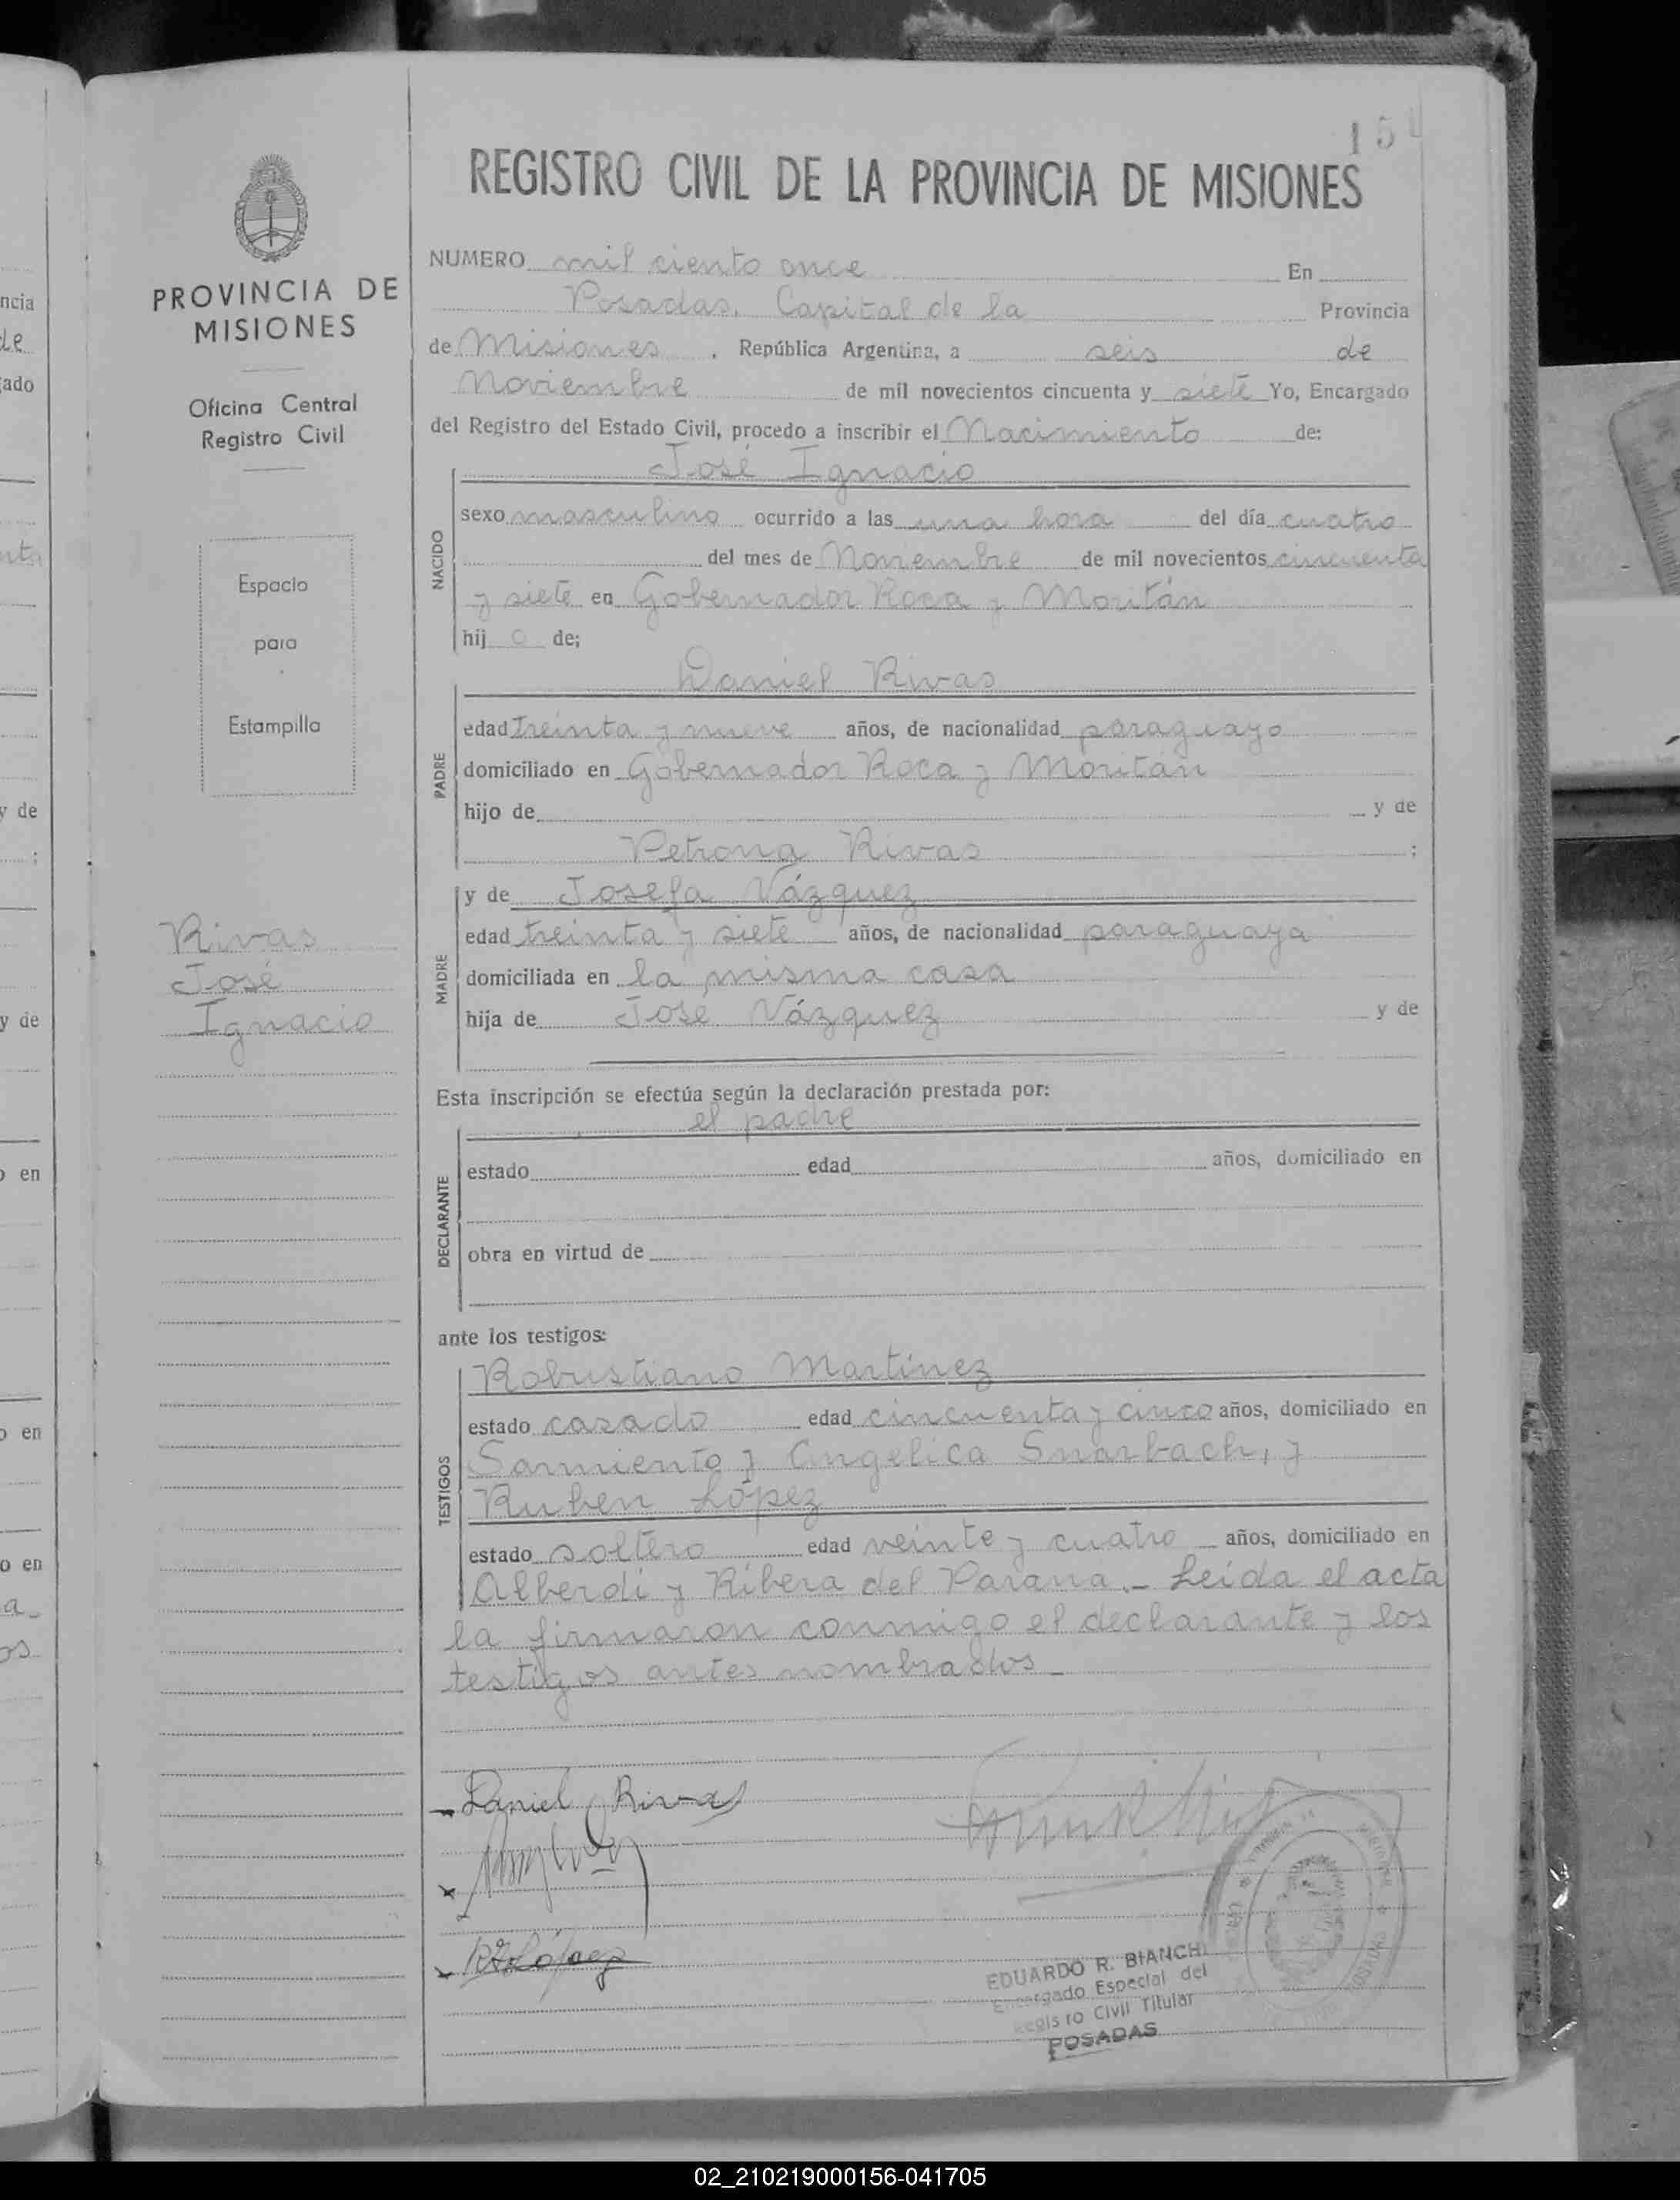 REGISTRO CIVIL DE LA PROVINCIA DE MISIONES
PROVINCIA DE
MISIONES
Oficina Central
Registro Civil
Espacio
para
Estampilla
Rivas
José
Ignacio
NUMERO mil ciento once En
Posadas, Capital de la Provincia
de Misiones, República Argentina, a seis de
Noviembre de mil novecientos cincuenta y siete Yo, Encargado
del Registro del Estado Civil, procedo a inscribir el Nacimiento de:
NACIDO
José Ignacio
sexo masculino ocurrido a las una hora del día cuatro
del mes de Noviembre de mil novecientos cincuenta
y siete en Gobernador Roca y Moritán
hij o de;
PADRE
Daniel Rivas
edad treinta y nueve años, de nacionalidad paraguayo
domiciliado en Gobernador Roca y Moritán
hijo de y de
Petrona Rivas ;
MADRE
y de Josefa Vázquez
edad treinta y siete años, de nacionalidad paraguaya
domiciliada en la misma casa
hija de José Vázquez y de
Esta inscripción se efectúa según la declaración prestada por:
DECLARANTE
el padre
estado edad años, domiciliado en
obra en virtud de
ante los testigos:
TESTIGOS
Robustiano Martínez
estado casado edad cincuenta y cinco años, domiciliado en
Sarmiento y Angélica, y
Ruben López
estado soltero edad veinte y cuatro años, domiciliado en
Alberdi y Ribera del Parana.- Leída el acta
la firmaron conmigo el declarante y los
testigos antes nombrados_
Daniel Rivas
EDUARDO R. BIANCHI
Encargado Especial del
Registro Civil Titular
POSADAS
02_210219000156-041705